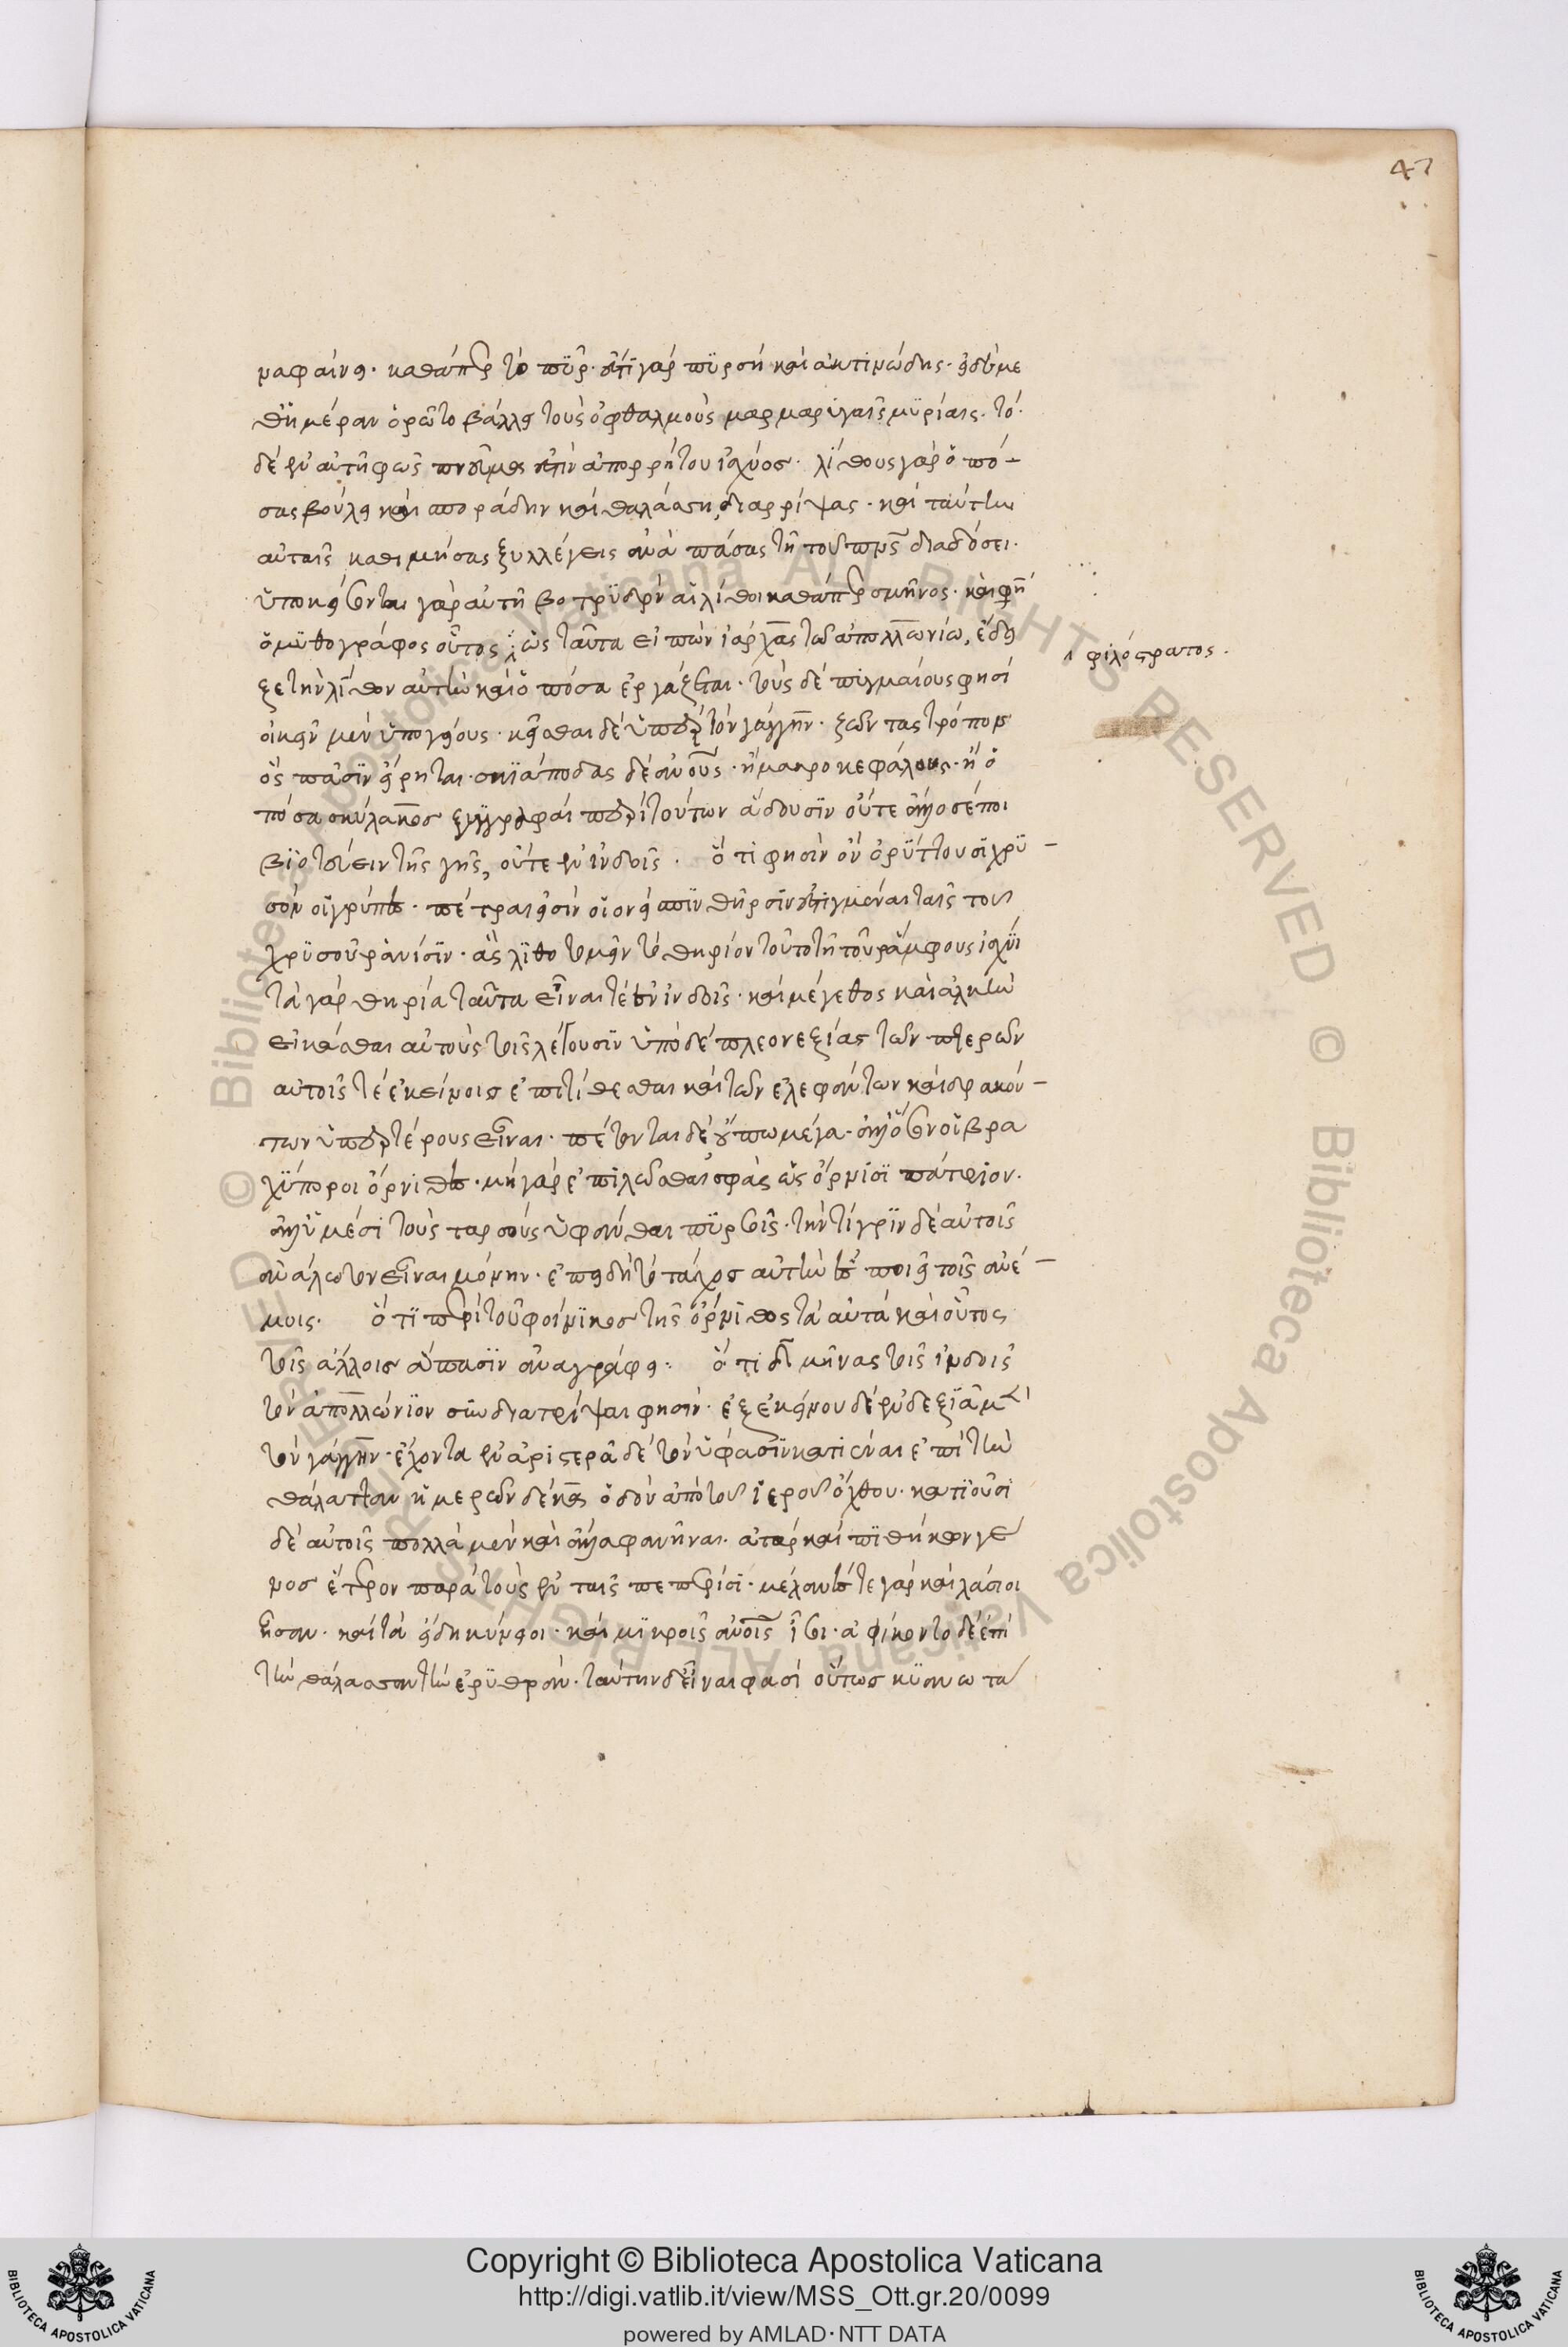 47
μαφαίνει· καθάπερ τὸ πῦρ· ἔστι γὰρ πυρσὴ καὶ ἀκτινώδης· εἰ δὲ με
θ' ἡμέραν ὁρῶτο βάλλει τοὺς ὀφθαλμοὺς μαρμαρυγαῖς μυρίαις. τὸ
δὲ ἐν αὐτῆ φῶς πνεῦμα ἐστὶν ἀπορρήτου ἰσχύος· λίθους γὰρ ὁπό-
σας βούλει καὶ σποράδην καὶ θαλάσση διαρρίψας· καὶ ταύτην
αὐταῖς καθιμήσας ξυλλέγεις ἀνὰ πάσας τῆ τοῦ πνς διαδόσει·
ὑποκείσονται γὰρ αὐτῆ βοτρυδὸν αἱ λίθοι καθάπερ σμῆνος· καὶ φη
ὁ μυθογράφος οὗτος ὡς ταῦτα εἰπὼν ἰάρχας τῶ ἀπολλωνίω, ἔδει
φιλόστρατος.
ξε τὴν λίθον αὐτὴν καὶ ὁπόσα ἐργάζεται· τοὺς δὲ πιγμαίους φησὶ
οἰκεῖν μὲν ὑπογείους· κεῖσθαι δὲ ὑπὲρ τὸν γάγγην· ζῶντας τρόπον
ὃς πᾶσιν εἴρηται· σκιάποδας δὲ ἀνους· ἢ μακροκεφάλους· ἢ ὁ
πόσα σκύλακος ξυγγραφαὶ περὶ τούτων ἄδουσιν οὔτε ἄλλοσέ ποι
βιοτεύειν τῆς γῆς, οὔτε ἐν ἰνδοῖς. ὅτι φησὶν ὃν ὀρύττουσι χρυ-
σὸν οἱ γρῦπες· πέτραι εἰσὶν οἷον εἰ σπινθῆρσιν ἐστιγμέναι ταῖς τοῦ
χρυσοῦ ῥανίσιν· ἃς λιθοτομεῖν τὸ θηρίον τοῦτο τῆ τοῦ ῥάμφους ἰσχύι
τὰ γὰρ θηρία ταῦτα εἶναί τε ἐν ἰνδοῖς· καὶ μέγεθος καὶ ἀλκὴν
εἰκάσθαι αὐτοὺς τοῖς λέουσιν ὑπὸ δὲ πλεονεξίας τῶν πτερῶν
αὐτοῖς τε ἐκείνοις ἐπιτίθεσθαι καὶ τῶν ἐλεφάντων καὶ δρακόν-
των ὑπερτέρους εἶναι· πέτονται δὲ οὔπω μέγα· ἀλλ' ὅσον οἱ βρα
χύποροι ὄρνιθες· μὴ γὰρ ἐπτιλῶσθαι σφᾶς ὡς ὄρνισι πάτριον·
ἀλλ' ὑμέσι τοὺς ταρσοὺς ὑφάνθαι πυρσοῖς· τὴν τίγριν δὲ αὐτοῖς
ἀνάλωτον εἶναι μόνην· ἐπειδὴ τὸ τάχος αὐτὴν ἐσποιεῖ τοῖς ἀνέ-
μοις. ὅτι περὶ τοῦ φοίνικος τῆς ὄρνιθος τὰ αὐτὰ καὶ οὗτος
τοῖς ἄλλοις ἅπασιν ἀναγράφει. ὅτι δ μῆνας τοῖς ἰνδοῖς
τὸν ἀπολλώνιον συνδιατρίψαι φησίν· ἐξ ἐκείνου δὲ ἐν δεξιᾶ μὲν
τὸν γάγγην· ἔχοντα ἐν ἀριστερᾶ δὲ τὸν ὕφασιν κατιέναι ἐπὶ τὴν
θάλατταν ἡμερῶν δέκα ὁδὸν ἀπὸ τοῦ ἱεροῦ ὄχθου· κατιοῦσι
δὲ αὐτοῖς πολλὰ μὲν καὶ ἄλλα φανῆναι· ἀτὰρ καὶ πιθήκων γέ
νος ἕτερον παρὰ τοὺς ἐν ταῖς πεπερίσι· μέλανές τε γὰρ καὶ λάσιοι
ἦσαν· καὶ τὰ εἴδη κύνειοι· καὶ μικροῖς ανοις ἴσοι· ἀφίκοντο δὲ ἐπὶ
τὴν θάλασσαν τὴν ἐρυθράν· ταύτην δ' εἶναι φασὶ οὕτως κυανωτά
Copyright © Biblioteca Apostolica Vaticana
http://digi.vatlib.it/view/MSS_Ott.gr.20/0099
powered by AMLAD·NTT DATA